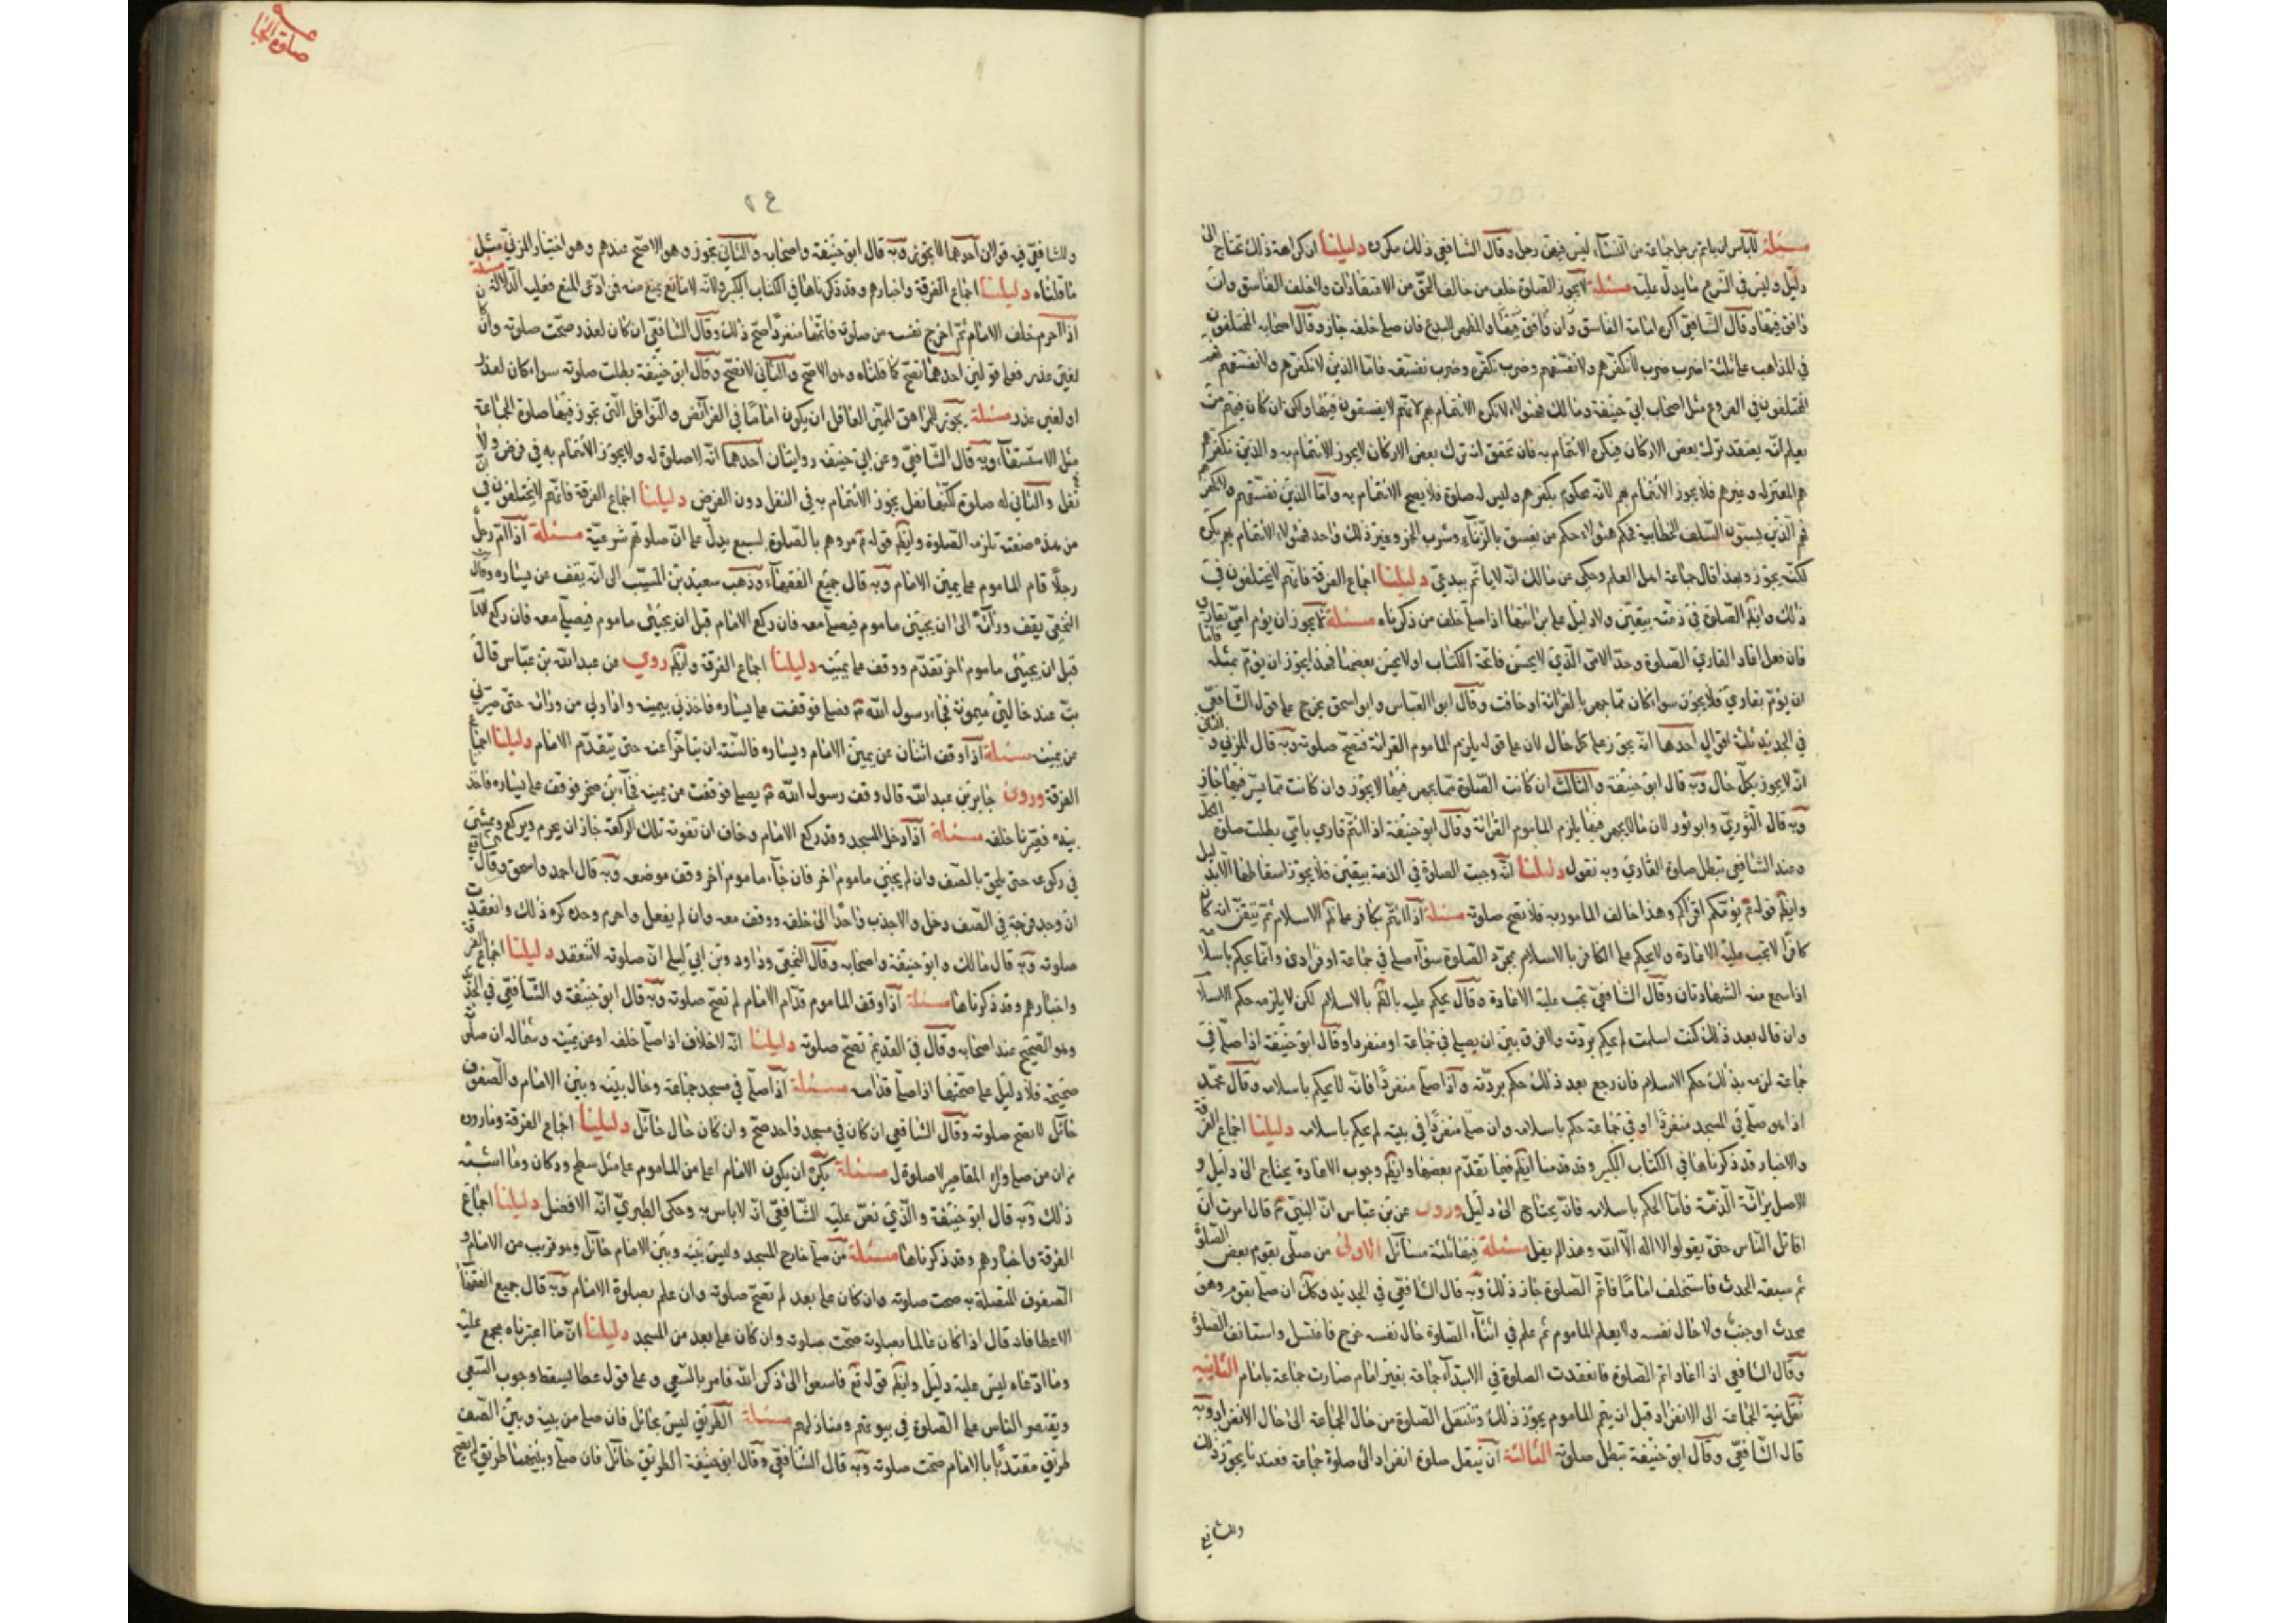 مسئلة لا باس ان يام رجل جماعة من النساء ليس فيهن رجل وقال الشافعي ذلك مكروه دليلنا ان كراهة ذلك تحتاج الى
دليل وليس في الشرع ما يدل عليه مسئلة لا يجوز الصلوة خلف من خالف الحق من الاعتقادات ولا خلف الفاسق وان
وافق فيها وقال الشافعي اكره امامة الفاسق والمظهر للبدع فان صلى خلفه جاز وقال اصحابه المختلفون
في المذاهب على ثلثة اضرب ضرب لا نكفرهم ولا نفسقهم وضرب نكفره وضرب نفسقه فاما الذين لا نكفرهم ولا نفسقهم فهم
المختلفون في الفروع مثل اصحاب ابي حنيفة ومالك فهؤلاء لا يكره الائتمام بهم لانهم لا يفسقون فيها ولكن ان كان فيهم من
يعلم انه يعتقد ترك بعض الاركان فيكره الائتمام به فان تحقق انه ترك بعض الاركان لا يجوز الائتمام به والذين نكفرهم
هم المعتزله وغيرهم فلا يجوز الائتمام بهم لانه محكوم بكفرهم وليس له صلوة فلا يصح الائتمام به واما الذين نفسقهم ولا نكفرهم
فهم الذين يسبون السلف الخطابية فحكم هؤلاء حكم من يفسق بالزناء وشرب الخمر وغير ذلك واحد فهؤلاء الائتمام بهم يكره
لكنه يجوز وبهذا قال جماعة اهل العلم وحكى عن مالك انه لا ياتم ببدعي دليلنا اجماع الفرقة فانهم لا يختلفون في
ذلك وايضا الصلوة في ذمته بيقين ولا دليل على برائتها اذا صلى خلف من ذكرناه مسئلة لا يجوز ان يؤم امي بقاري
فان فعل اعاد القاري الصلوة وحد الامي الذي لا يحسن فاتحة الكتاب او لا يحسن بعضها فهذا يجوز ان يؤم بمثله فاما
ان يؤم بقاري فلا يجوز سواء كان مما جهر بالقرائة او خافت وقال ابو العباس وابو اسحق يخرج على قول الشافعي
في الجديد ثلثة اقوال احدها انه يجوز على كل حال لان على قوله يلزم الماموم القرائة فتصح صلوته وبه قال المزني والثاني
انه لا يجوز بكل حال وبه قال ابو حنيفة والثالث ان كانت الصلوة مما يجهر فيها لا يجوز وان كانت مما يسر فيها جاز
وبه قال الثوري وابو ثور لان ما لا يجهر فيها يلزم الماموم القرائة وقال ابو حنيفة اذا ائتم قاري بامي بطلت صلوة الكل
وعند الشافعي تبطل صلوة القاري وبه نقول دليلنا انه وجبت الصلوة في الذمة بيقين فلا يجوز اسقاطها الا بدليل
وايضا قوله ع يؤمكم اقراكم وهذا خالف المامور به فلا تصح صلوته مسئلة اذا ائتم بكافر على ظاهر الاسلام ثم تبين انه كان
كافرا لا تجب عليه الاعادة ولا يحكم على الكافر بالاسلام بمجرد الصلوة سواء صلى في جماعة او فرادى وانما يحكم باسلامه
اذا سمع منه الشهادتان وقال الشافعي تجب عليه الاعادة وقال يحكم عليه بالاسلام لكن لا يلزمه حكم الاسلام
وان قال بعد ذلك كنت اسلمت لم يحكم بردته ولا فرق بين ان يصلي في جماعة او منفردا وقال ابو حنيفة اذا صلى في
جماعة لزمه بذلك حكم الاسلام فان رجع بعد ذلك حكم بردته واذا صلى منفردا فانه لا يحكم باسلامه وقال محمد
اذا صلى في المسجد منفردا او في جماعة حكم باسلامه وان صلى منفردا في بيته لم يحكم باسلامه دليلنا اجماع الفرقة
والاخبار قد ذكرناها في الكتاب الكبير وقد قدمنا ايضا فيما تقدم بعضها وايضا وجوب الاعادة يحتاج الى دليل و
الاصل برائة الذمة فاما الحكم باسلامه فانه يحتاج الى دليل وروى عن بن عباس ان النبي ص قال امرت ان
اقاتل الناس حتى يقولوا لا اله الا الله وهذا لم يقل مسئلة فيها ثلثة مسائل الاولى من صلى بقوم بعض الصلوة
ثم سبقه الحدث فاستخلف اماما فاتم الصلوة جاز ذلك وبه قال الشافعي في الجديد وكك ان صلى بقوم وهو
محدث او جنب ولا حال نفسه ولا يعلم الماموم ثم علم في اثناء الصلوة حال نفسه خرج فاغتسل واستانف الصلوة
وقال الشافعي اذا عاد اتم الصلوة فانعقدت الصلوة في الابتداء جماعة بغير امام صارت جماعة بامام الثانية
نقل نية الجماعة الى الانفراد قبل ان يتم الماموم يجوز ذلك وتنتقل الصلوة من حال الجماعة الى حال الانفراد وبه
قال الشافعي وقال ابو حنيفة تبطل صلوته الثالثة ان ينقل صلوة انفراد الى صلوة جماعة فعندنا يجوز ذلك
وللشافعي
٢٤
وللشافعي فيه قولان احدهما لا يجوز وبه قال ابو حنيفة واصحابه والثاني يجوز وهو الاصح عندهم وهو اختيار المزني مثل
ما قلناه دليلنا اجماع الفرقة واخبارهم وقد ذكرناها في الكتاب الكبير ولانه لا مانع يمنع منه فمن ادعى المنع فعليه الدلالة مسئلة
اذا احرم خلف الامام ثم اخرج نفسه من صلوته فاتمها منفردا صح ذلك وقال الشافعي ان كان لعذر صحت صلوته وان كان
لغير عذر فعلى قولين احدهما تصح كما قلناه وهو الاصح والثاني لا تصح وقال ابو حنيفة بطلت صلوته سواء كان لعذر
او لغير عذر مسئلة يجوز للمراهق المميز العاقل ان يكون اماما في الفرائض والنوافل التي تجوز فيها صلوة الجماعة
مثل الاستسقاء وبه قال الشافعي وعن ابي حنيفة روايتان احدهما انه لا صلوة له ولا يجوز الائتمام به في فرض ولا
نفل والثاني ان له صلوة لكنها نفل يجوز الائتمام به في النفل دون الفرض دليلنا اجماع الفرقة فانهم لا يختلفون في
من هذه صفته تلزمه الصلوة وايضا قوله ع مروهم بالصلوة لسبع يدل على ان صلوتهم شرعية مسئلة اذا ام رجل
رجلا قام الماموم على يمين الامام وبه قال جميع الفقهاء وذهب سعيد بن المسيب الى انه يقف عن يساره وقال
النخعي يقف ورائه الى ان يجيئ ماموم فيصلي معه فان ركع الامام قبل ان يجيئ ماموم فيصلي معه فان ركع الامام
قبل ان يجيئ ماموم اخر تقدم ووقف على يمينه دليلنا اجماع الفرقة وايضا روي عن عبد الله بن عباس قال
بت عند خالتي ميمونة فجاء رسول الله ص فصلى فوقفت على يساره فاخذني بيمينه وادارني من ورائه حتى صيرني
عن يمينه مسئلة اذا وقف اثنان عن يمين الامام ويساره فالسنة ان يتاخرا عنه حتى يتقدم الامام دليلنا اجماع
الفرقة وروى جابر بن عبد الله قال وقف رسول الله ص يصلي فوقفت عن يمينه فجاء بن صخر فوقف على يساره فاخذ
بيده فصيرنا خلفه مسئلة اذا دخل المسجد وقد ركع الامام وخاف ان تفوته تلك الركعة جاز ان يحرم ويركع ويمشي
في ركوعه حتى يلحق بالصف وان لم يجيئ ماموم اخر فان جاء ماموم اخر وقف موضعه وبه قال احمد واسحق وقال الشافعي
ان وجد فرجة في الصف دخل والا جذب واحدا الى خلفه ووقف معه وان لم يفعل واحرم وحده كره ذلك وانعقدت
صلوته وبه قال مالك وابو حنيفة واصحابه وقال النخعي وداود وبن ابي ليلى ان صلوته لا تنعقد دليلنا اجماع الفرقة
واخبارهم وقد ذكرناها مسئلة اذا وقف الماموم قدام الامام لم تصح صلوته وبه قال ابو حنيفة والشافعي في الجديد
وهو الصحيح عند اصحابه وقال في القديم تصح صلوته دليلنا انه لا خلاف اذا صلى خلفه او عن يمينه وشماله ان صلوته
صحيحة فلا دليل على صحتها اذا صلى قدامه مسئلة اذا صلى في مسجد جماعة وحال بينه وبين الامام والصفوف
حائل لا تصح صلوته وقال الشافعي ان كان في مسجد واحد صح وان كان حال حائل دليلنا اجماع الفرقة وما رووه
من ان من صلى وراء المقاصير لا صلوة له مسئلة يكره ان يكون الامام اعلى من الماموم على مثل سطح ودكان وما اشبه
ذلك وبه قال ابو حنيفة والذي نص عليه الشافعي انه لا باس به وحكى الطبري انه الافضل دليلنا اجماع
الفرقة واخبارهم وقد ذكرناها مسئلة من صلى خارج المسجد وليس بينه وبين الامام حائل وهو قريب من الامام و
الصفوف المتصلة به صحت صلوته وان كان على بعد لم تصح صلوته وان علم بصلوة الامام وبه قال جميع الفقهاء
الا عطا فانه قال اذا كان عالما بصلوته صحت صلوته وان كان على بعد من المسجد دليلنا ان ما اعتبرناه مجمع عليه
وما ادعاه ليس عليه دليل وايضا قوله تع فاسعوا الى ذكر الله فامر بالسعي وعلى قول عطا يسقط وجوب السعي
ويقتصر الناس على الصلوة في بيوتهم ومنازلهم مسئلة الطريق ليس بحائل فان صلى من بينه وبين الصف
طريق مقتديا بالامام صحت صلوته وبه قال الشافعي وقال ابو حنيفة الطريق حائل فان صلى وبينهما طريق لم تصح